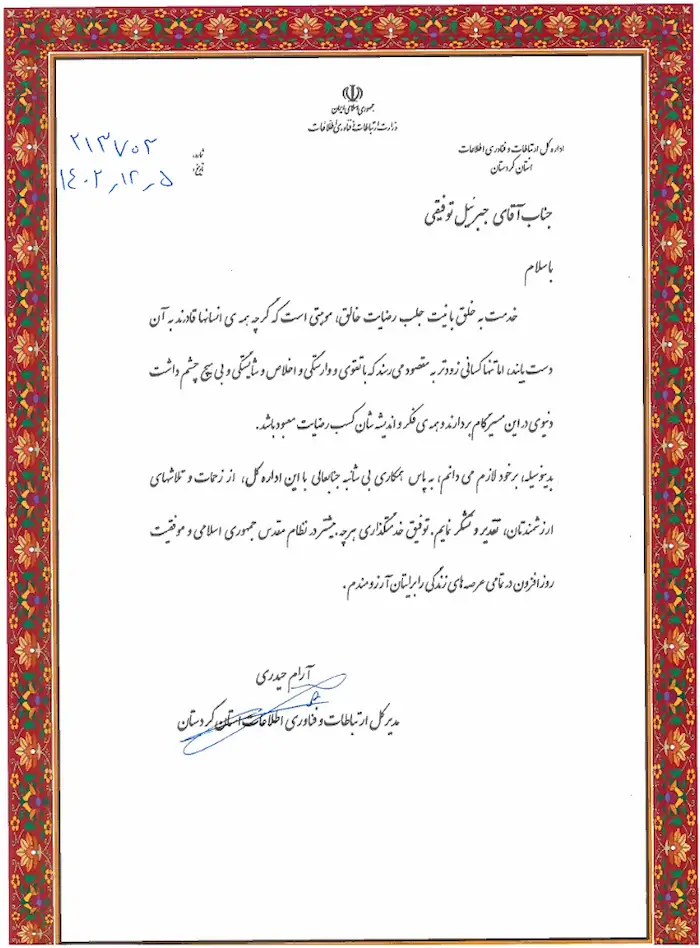 جمهوری اسلامی ایران
وزارت ارتباطات و فناوری اطلاعات
اداره کل ارتباطات و فناوری اطلاعات
استان کردستان
شماره: ۲۱۳۷۰۲
تاریخ: ۱۴۰۲/۱۲/۵
جناب آقای جبرئیل توفیقی
باسلام
خدمت به خلق با نیت جلب رضایت خالق، موهبتی است که گرچه همه ی انسانها قادرند به آن
دست یابند، اما تنها کسانی زودتر به مقصود می رسند که با تقوی و وارستگی و اخلاص و شایستگی و بی هیچ چشم داشت
دنیوی در این مسیر گام بردارند و همه ی فکر و اندیشه شان کسب رضایت معبود باشد.
بدینوسیله، برخود لازم می دانم، به پاس همکاری بی شائبه جنابعالی با این اداره کل، از زحمات و تلاشهای
ارزشمندتان، تقدیر و تشکر نمایم. توفیق خدمتگذاری هرچه بیشتر در نظام مقدس جمهوری اسلامی و موفقیت
روز افزون در تمامی عرصه های زندگی را برایتان آرزومندم.
آرام حیدری
مدیر کل ارتباطات و فناوری اطلاعات استان کردستان